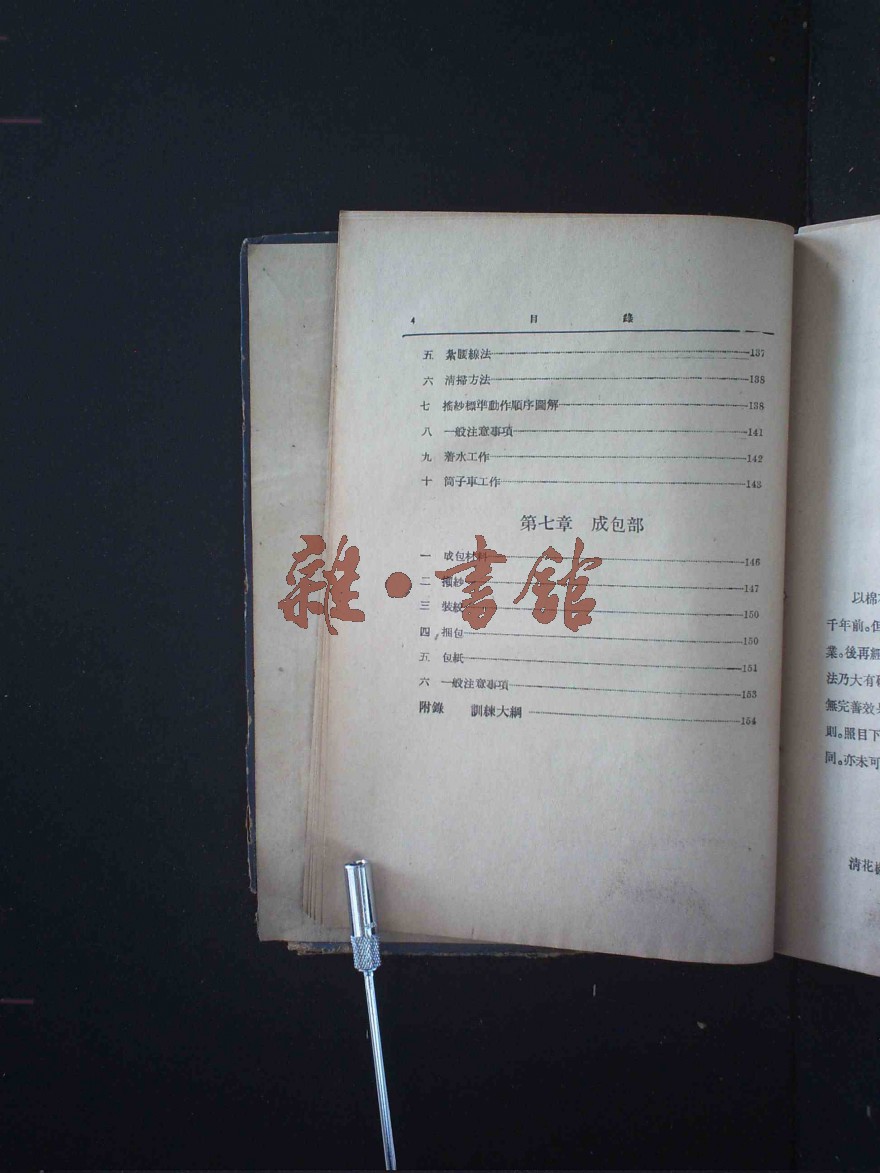 4 目 錄
五 紮腰線法 137
六 清掃方法 138
七 搖紗標準動作順序圖解 138
八 一般注意事項 141
九 着水工作 142
十 筒子車工作 143
第七章 成包部
一 成包材料 146
二 紗 147
三 裝 150
四 捆包 150
五 包紙 151
六 一般注意事項 153
附錄 訓練大綱 154
雜·書館
以棉
千年前。但
業。後再經
法乃大有
無完善效
則。照目下
同。亦未可
清花